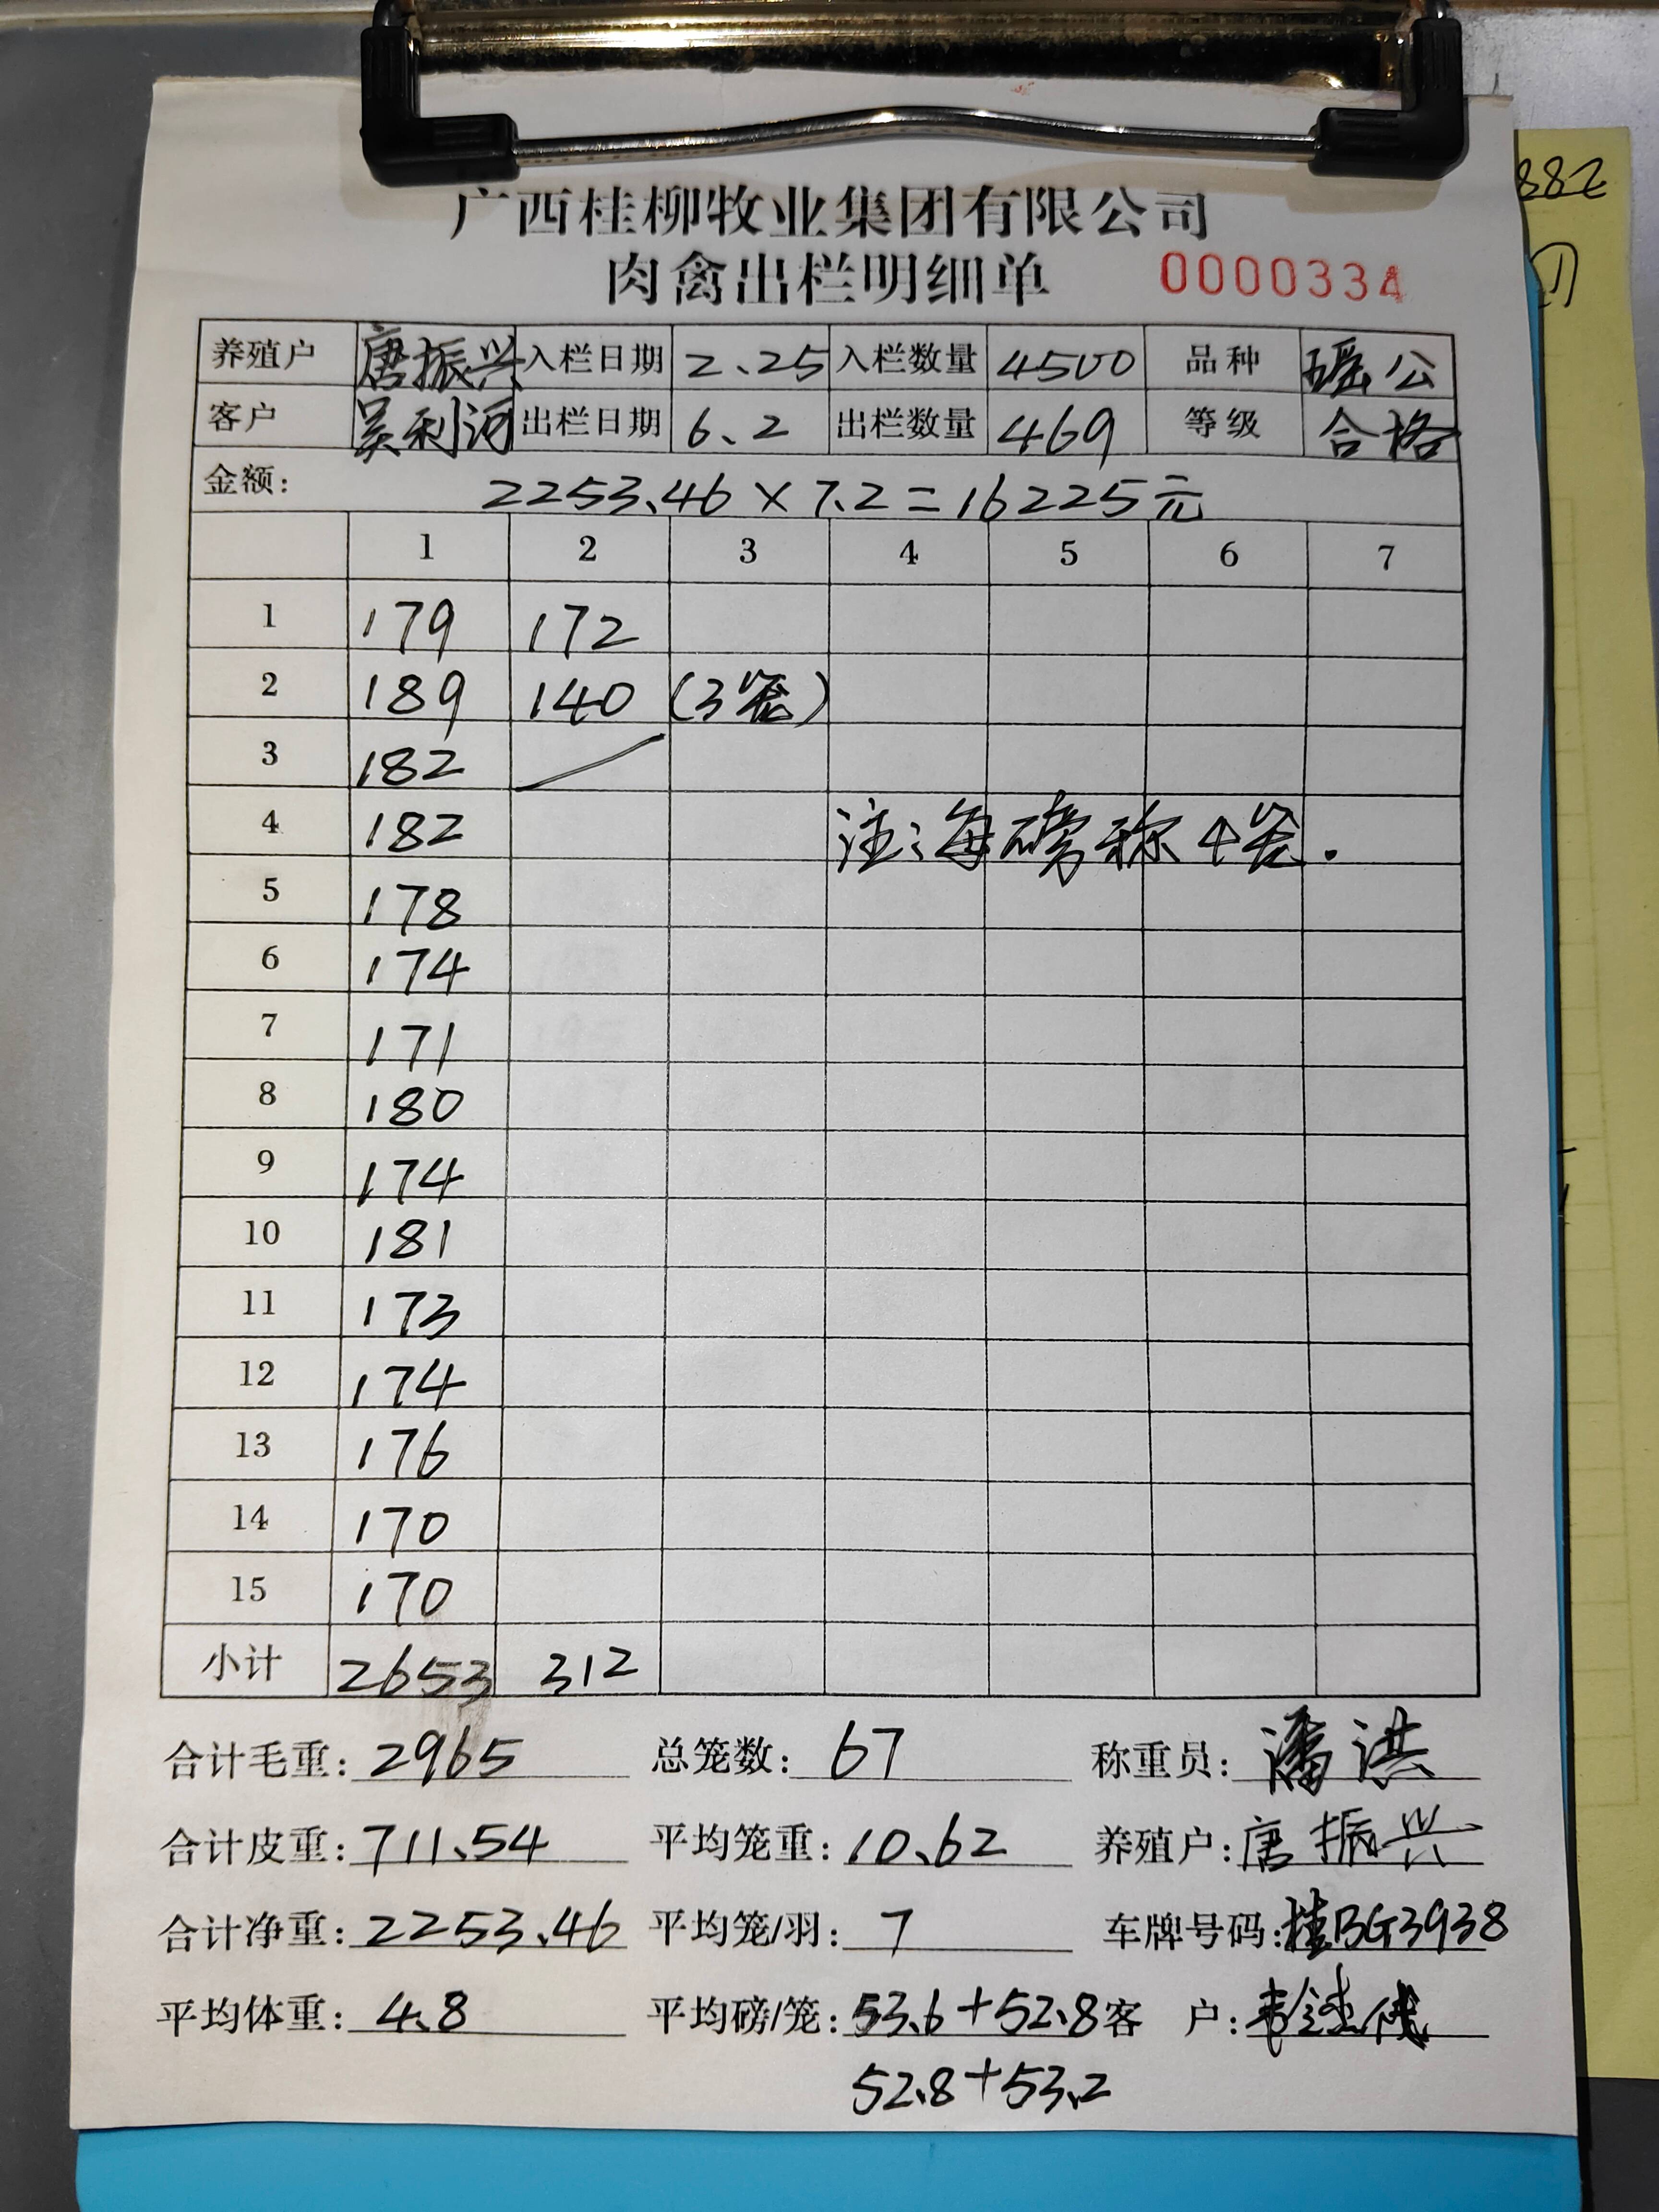 广西桂柳牧业集团有限公司
肉禽出栏明细单 0000334
养殖户 唐振兴 入栏日期 2.25 入栏数量 4500 品种 瑶公
客户 吴利河 出栏日期 6.2 出栏数量 469 等级 合格
金额: 2253.46×7.2=16225元
1 2 3 4 5 6 7
1 179 172
2 189 140 (3笼)
3 182
4 182 注:每磅称4笼.
5 178
6 174
7 171
8 180
9 174
10 181
11 173
12 174
13 176
14 170
15 170
小计 2653 312
合计毛重: 2965 总笼数: 67 称重员: 潘洪
合计皮重: 711.54 平均笼重: 10.62 养殖户: 唐振兴
合计净重: 2253.46 平均笼/羽: 7 车牌号码: 桂BG3938
平均体重: 4.8 平均磅/笼: 53.6+52.8 客 户:
52.8+53.2
882